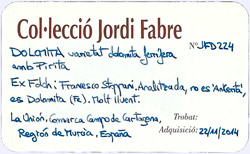 Col·lecció Jordi Fabre
DOLOMITA varietat dolomita ferrífera Nº JFD224
amb Pirita
Ex Folch; Francesco Stoppani. Analitzada, no és Ankerita,
es Dolomita (Fe). Molt lluent.
La Unión, Comarca Campo de Cartagena, Trobat:
Región de Murcia, España Adquisició: 22/11/2014